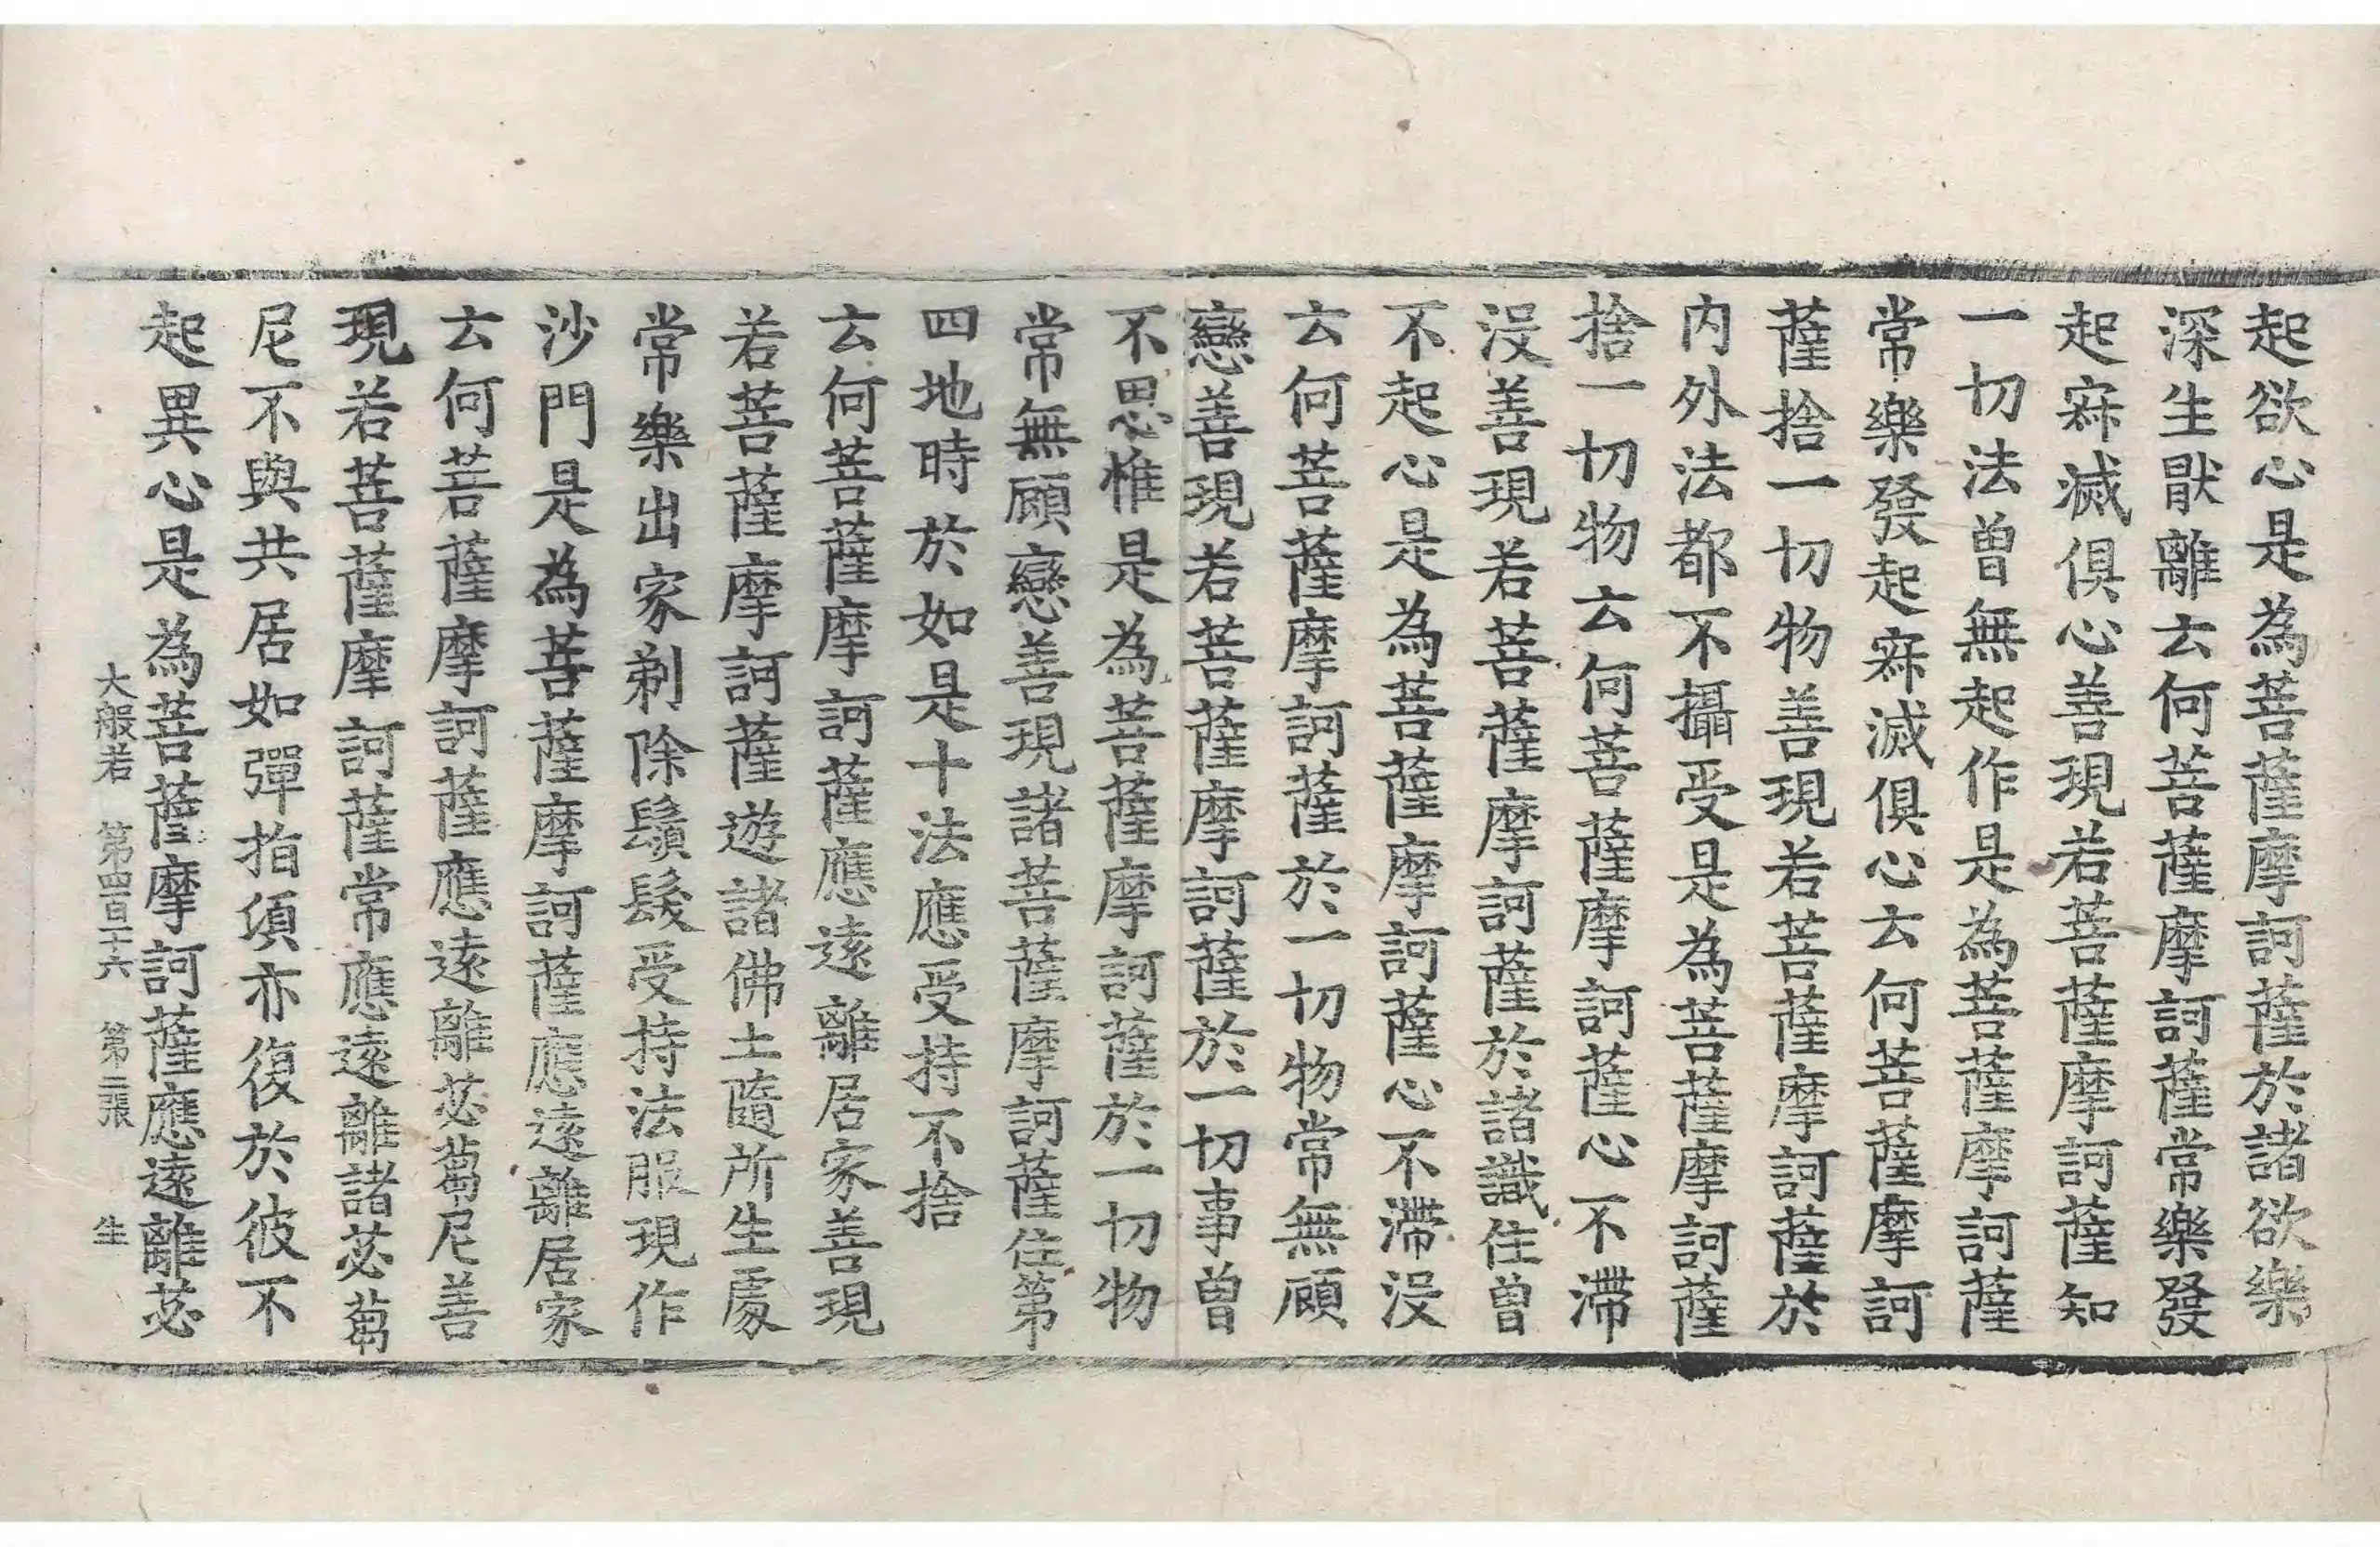 起欲心是為菩薩摩訶薩於諸欲樂
深生猒離云何菩薩摩訶薩常樂發
起㝛滅俱心善現若菩薩摩訶薩知
一切法曾無起作是為菩薩摩訶薩
常樂發起㝛滅俱心云何菩薩摩訶
薩捨一切物善現若菩薩摩訶薩於
内外法都不攝受是為菩薩摩訶薩
捨一切物云何菩薩摩訶薩心不滯
没善現若菩薩摩訶薩於諸識住曾
不起心是為菩薩摩訶薩心不滯没
云何菩薩摩訶薩於一切物常無顧
戀善現若菩薩摩訶薩於一切事曾
不思惟是為菩薩摩訶薩於一切物
常無顧戀善現諸菩薩摩訶薩住第
四地時於如是十法應受持不捨
云何菩薩摩訶薩應遠離居家善現
若菩薩摩訶薩遊諸佛土隨所生處
常樂出家剃除鬚髮受持法服現作
沙門是為菩薩摩訶薩應遠離居家
云何菩薩摩訶薩應遠離苾蒭尼善
現若菩薩摩訶薩常應遠離諸苾蒭
尼不與共居如彈指頃亦復於彼不
起異心是為菩薩摩訶薩應遠離苾
大般若 第四百一十六 第二張 生